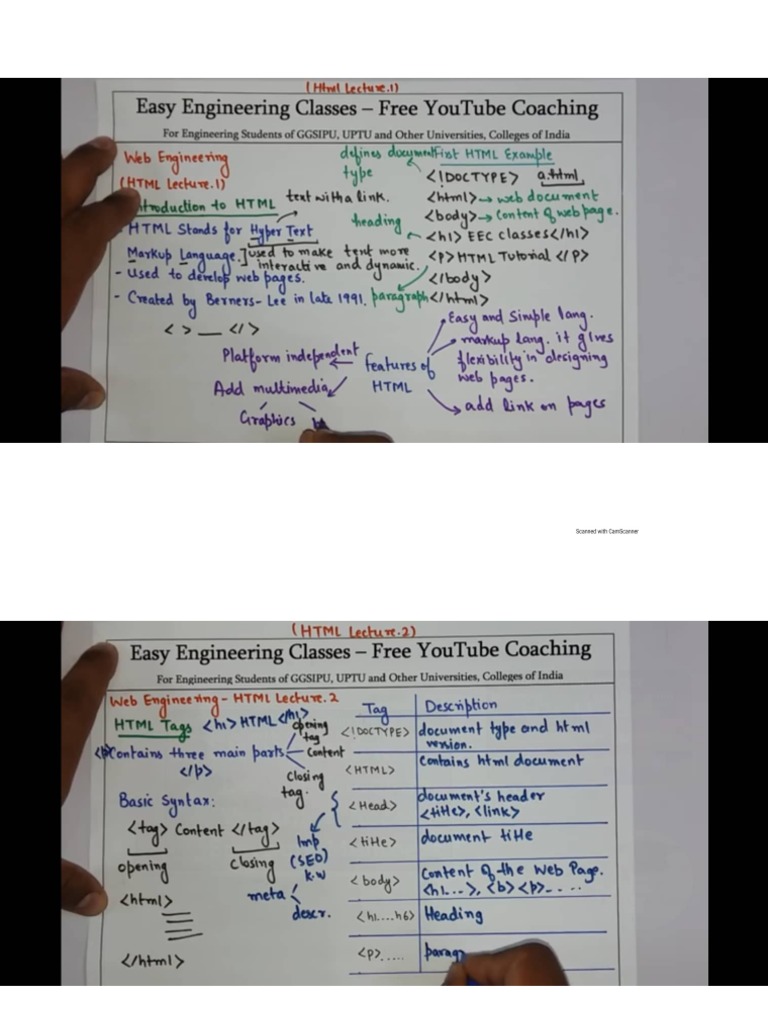 (Html Lecture.1)
Easy Engineering Classes – Free YouTube Coaching
For Engineering Students of GGSIPU, UPTU and Other Universities, Colleges of India
Web Engineering
(HTML Lecture.1)
Introduction to HTML
text with a link.
- HTML Stands for Hyper Text
Markup Language.] used to make text more
interactive and dynamic.
- Used to develop web pages.
- Created by Berners-Lee in late 1991.
< > __ </>
defines document type
First HTML Example
<!DOCTYPE> a.html
<html> → web document
<body> → Content of web page.
heading
<h1> EEC Classes</h1>
<p> HTML Tutorial </P>
</body>
paragraph
</html>
features of
HTML
Easy and Simple lang.
markup lang. it gives
flexibility in designing
web pages.
add link on pages
Platform independent
Add multimedia
Graphics
Scanned with CamScanner
(HTML Lecture.2)
Easy Engineering Classes – Free YouTube Coaching
For Engineering Students of GGSIPU, UPTU and Other Universities, Colleges of India
Web Engineering - HTML Lecture.2
HTML Tags <h1> HTML </h1>
opening
tag
<p> Contains three main parts
Content
</p>
Closing
tag.
Basic Syntax:
<tag> Content </tag>
opening closing
<html>
</html>
Imp
(SEO)
K.W
meta
descr.
Tag Description
<!DOCTYPE> document type and html
version.
<HTML> Contains html document
<Head> document's header
<title>, <link>
<title> document title
<body> Content of the Web Page.
<h1...>, <b> <p>-...
<h1....h6> Heading
<p>..... parag